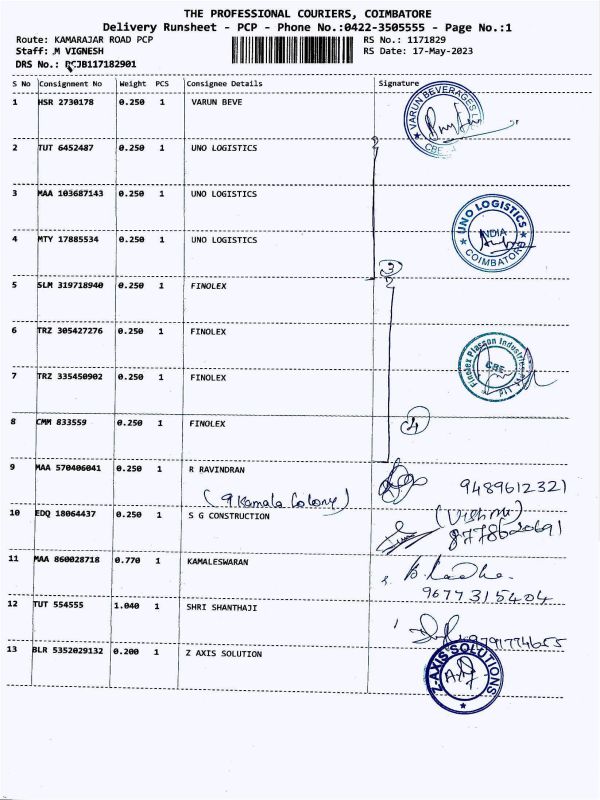 THE PROFESSIONAL COURIERS, COIMBATORE
Delivery Runsheet - PCP - Phone No.:0422-3505555 - Page No.:1
Route: KAMARAJAR ROAD PCP RS No.: 1171829
Staff: M VIGNESH RS Date: 17-May-2023
DRS No.: PCJB117182901
S No Consignment No Weight PCS Consignee Details Signature
1 HSR 2730178 0.250 1 VARUN BEVE
VARUN BEVERAGES
CBE
2 TUT 6452487 0.250 1 UNO LOGISTICS
3 MAA 103687143 0.250 1 UNO LOGISTICS
UNO LOGISTICS
INDIA
COIMBATORE
4 MTY 17885534 0.250 1 UNO LOGISTICS
3
5 SLM 319718940 0.250 1 FINOLEX
6 TRZ 305427276 0.250 1 FINOLEX
Finolex Plasson Industries
CBE
7 TRZ 335450902 0.250 1 FINOLEX
8 CMM 833559 0.250 1 FINOLEX
4
9 MAA 570406041 0.250 1 R RAVINDRAN
9489612321
(9 Kamala Colony)
10 EDQ 18064437 0.250 1 S G CONSTRUCTION
11 MAA 860028718 0.770 1 KAMALESWARAN
B. Radha.
9677315404
12 TUT 554555 1.040 1 SHRI SHANTHAJI
9791774655
13 BLR 5352029132 0.200 1 Z AXIS SOLUTION
Z-AXIS SOLUTIONS